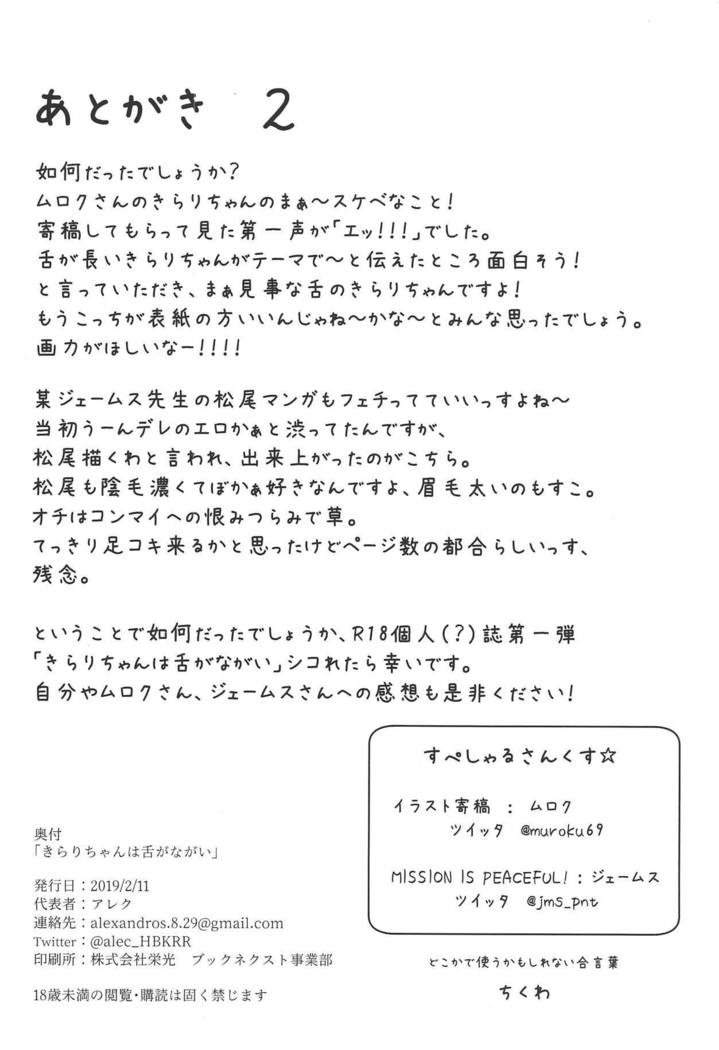 あとがき　2
如何だったでしょうか?
ムロクさんのきらりちゃんのまぁ〜スケベなこと!
寄稿してもらって見た第一声が「エッ!!!」でした。
舌が長いきらりちゃんがテーマで〜と伝えたところ面白そう!
と言っていただき、まぁ見事な舌のきらりちゃんですよ!
もうこっちが表紙の方いいんじゃね〜かな〜とみんな思ったでしょう。
画力がほしいなー!!!!
某ジェームス先生の松尾マンガもフェチってていいっすよね〜
当初うーんデレのエロかぁと渋ってたんですが、
松尾描くわと言われ、出来上がったのがこちら。
松尾も陰毛濃くてぼかぁ好きなんですよ、眉毛太いのもすこ。
オチはコンマイへの恨みつらみで草。
てっきり足コキ来るかと思ったけどページ数の都合らしいっす、
残念。
ということで如何だったでしょうか、R18個人(?)誌第一弾
「きらりちゃんは舌がながい」シコれたら幸いです。
自分やムロクさん、ジェームスさんへの感想も是非ください!
すぺしゃるさんくす☆
イラスト寄稿　:　ムロク
ツイッタ　@muroku69
MISSION IS PEACEFUL! : ジェームス
ツイッタ　@jms_pnt
どこかで使うかもしれない合言葉
ちくわ
奥付
「きらりちゃんは舌がながい」
発行日：2019/2/11
代表者：アレク
連絡先：alexandros.8.29@gmail.com
Twitter：@alec_HBKRR
印刷所：株式会社栄光　ブックネクスト事業部
18歳未満の閲覧・購読は固く禁じます